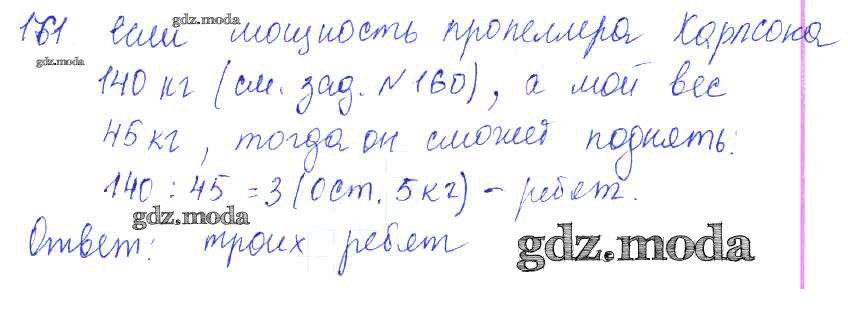 161 если мощность пропеллера Карлсона
140 кг (см. зад. №160), а мой вес
45 кг, тогда он сможет поднять:
140 : 45 = 3 (ост. 5 кг) - ребят.
Ответ: троих ребят
gdz.moda
gdz.moda
gdz.moda
gdz.moda